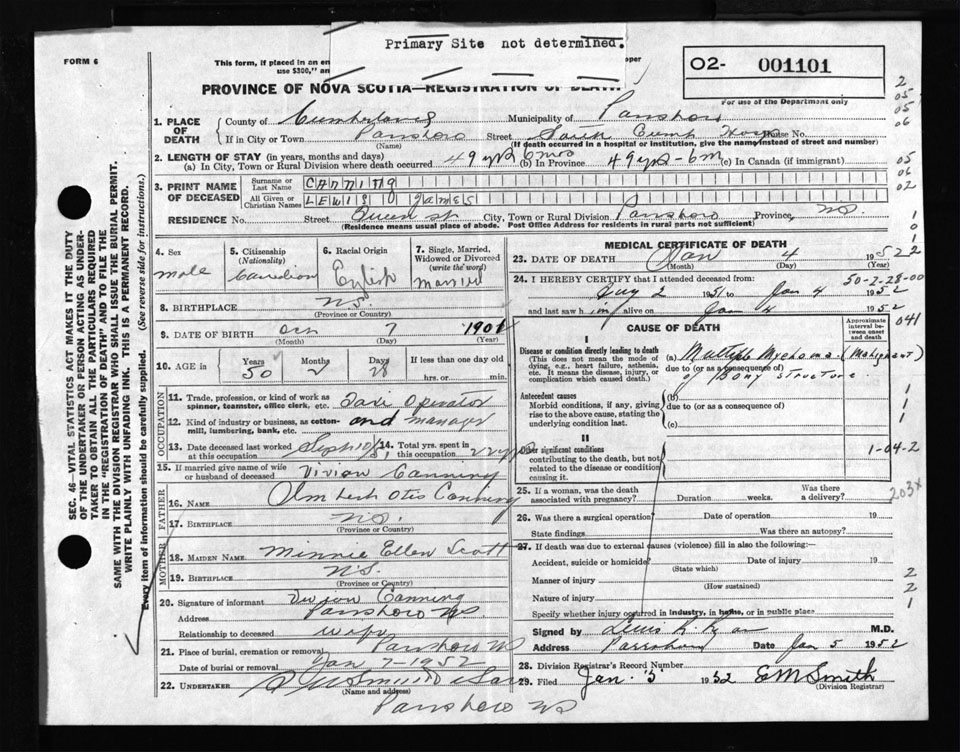 Primary Site not determined.
FORM 6
This form, if placed in an en
use $300," an
oper
PROVINCE OF NOVA SCOTIA—REGISTRATION OF DEATH
02- 001101
For use of the Department only
1. PLACE OF DEATH
County of Cumberland Municipality of Parrsboro
If in City or Town Parrsboro Street South Cumb Hosp House No.
(Name) (If death occurred in a hospital or institution, give the name instead of street and number)
2. LENGTH OF STAY (in years, months and days)
(a) In City, Town or Rural Division where death occurred 49 yrs 6 mos (b) In Province 49 yrs - 6 m (c) In Canada (if immigrant)
3. PRINT NAME OF DECEASED
Surname or Last Name CANNING
All Given or Christian Names LEWIS O JAMES
RESIDENCE No. Street Queen St City, Town or Rural Division Parrsboro Province NS
(Residence means usual place of abode. Post Office Address for residents in rural parts not sufficient)
4. Sex male
5. Citizenship (Nationality) Canadian
6. Racial Origin English
7. Single, Married, Widowed or Divorced (write the word) married
8. BIRTHPLACE N.S.
(Province or Country)
9. DATE OF BIRTH Oct 7 1901
(Month) (Day) (Year)
10. AGE in Years 50 Months 2 Days 28 If less than one day old
hrs. or min.
OCCUPATION
11. Trade, profession, or kind of work as spinner, teamster, office clerk, etc. Taxi Operator
12. Kind of industry or business, as cotton-mill, lumbering, bank, etc. and manager
13. Date deceased last worked at this occupation Sept 10/51
14. Total yrs. spent in this occupation 22 yrs
15. If married give name of wife or husband of deceased Vivian Canning
FATHER
16. NAME Otis Canning
17. BIRTHPLACE N.S.
(Province or Country)
MOTHER
18. MAIDEN NAME Minnie Ellen Scott
19. BIRTHPLACE N.S.
(Province or Country)
20. Signature of informant Vivian Canning
Address Parrsboro NS
Relationship to deceased wife
21. Place of burial, cremation or removal Parrsboro NS
Date of burial or removal Jan 7 - 1952
22. UNDERTAKER
(Name and address)
Parrsboro NS
MEDICAL CERTIFICATE OF DEATH
23. DATE OF DEATH Jan 4 1952
(Month) (Day) (Year)
24. I HEREBY CERTIFY that I attended deceased from:
Aug 2 1951 to Jan 4 1952
and last saw him alive on Jan 4 1952
CAUSE OF DEATH
Approximate interval between onset and death
I
Disease or condition directly leading to death
(This does not mean the mode of dying, e.g., heart failure, asthenia, etc. It means the disease, injury, or complication which caused death.)
(a) Multiple Myeloma (Malignant)
due to (or as a consequence of)
of Bony structure.
Antecedent causes
Morbid conditions, if any, giving rise to the above cause, stating the underlying condition last.
(b)
due to (or as a consequence of)
(c)
II
Other significant conditions
contributing to the death, but not related to the disease or condition causing it.
25. If a woman, was the death associated with pregnancy? Duration weeks. Was there a delivery?
26. Was there a surgical operation? Date of operation 19
State findings Was there an autopsy?
27. If death was due to external causes (violence) fill in also the following:—
Accident, suicide or homicide? Date of injury 19
(State which)
Manner of injury
(How sustained)
Nature of injury
Specify whether injury occurred in industry, in home, or in public place
Signed by M.D.
Address Parrsboro Date Jan 5 1952
28. Division Registrar's Record Number
29. Filed Jan. 5 1952 EM Smith
(Division Registrar)
2
05
05
06
05
06
02
1
0
1
2
50-2-28-00
041
1
1
1
1-04-2
203X
2
2
1
SEC. 46—VITAL STATISTICS ACT MAKES IT THE DUTY
OF THE UNDERTAKER OR PERSON ACTING AS UNDER-
TAKER TO OBTAIN ALL THE PARTICULARS REQUIRED
IN THE "REGISTRATION OF DEATH" AND TO FILE THE
SAME WITH THE DIVISION REGISTRAR WHO SHALL ISSUE THE BURIAL PERMIT.
WRITE PLAINLY WITH UNFADING INK. THIS IS A PERMANENT RECORD.
Every item of information should be carefully supplied. (See reverse side for instructions.)